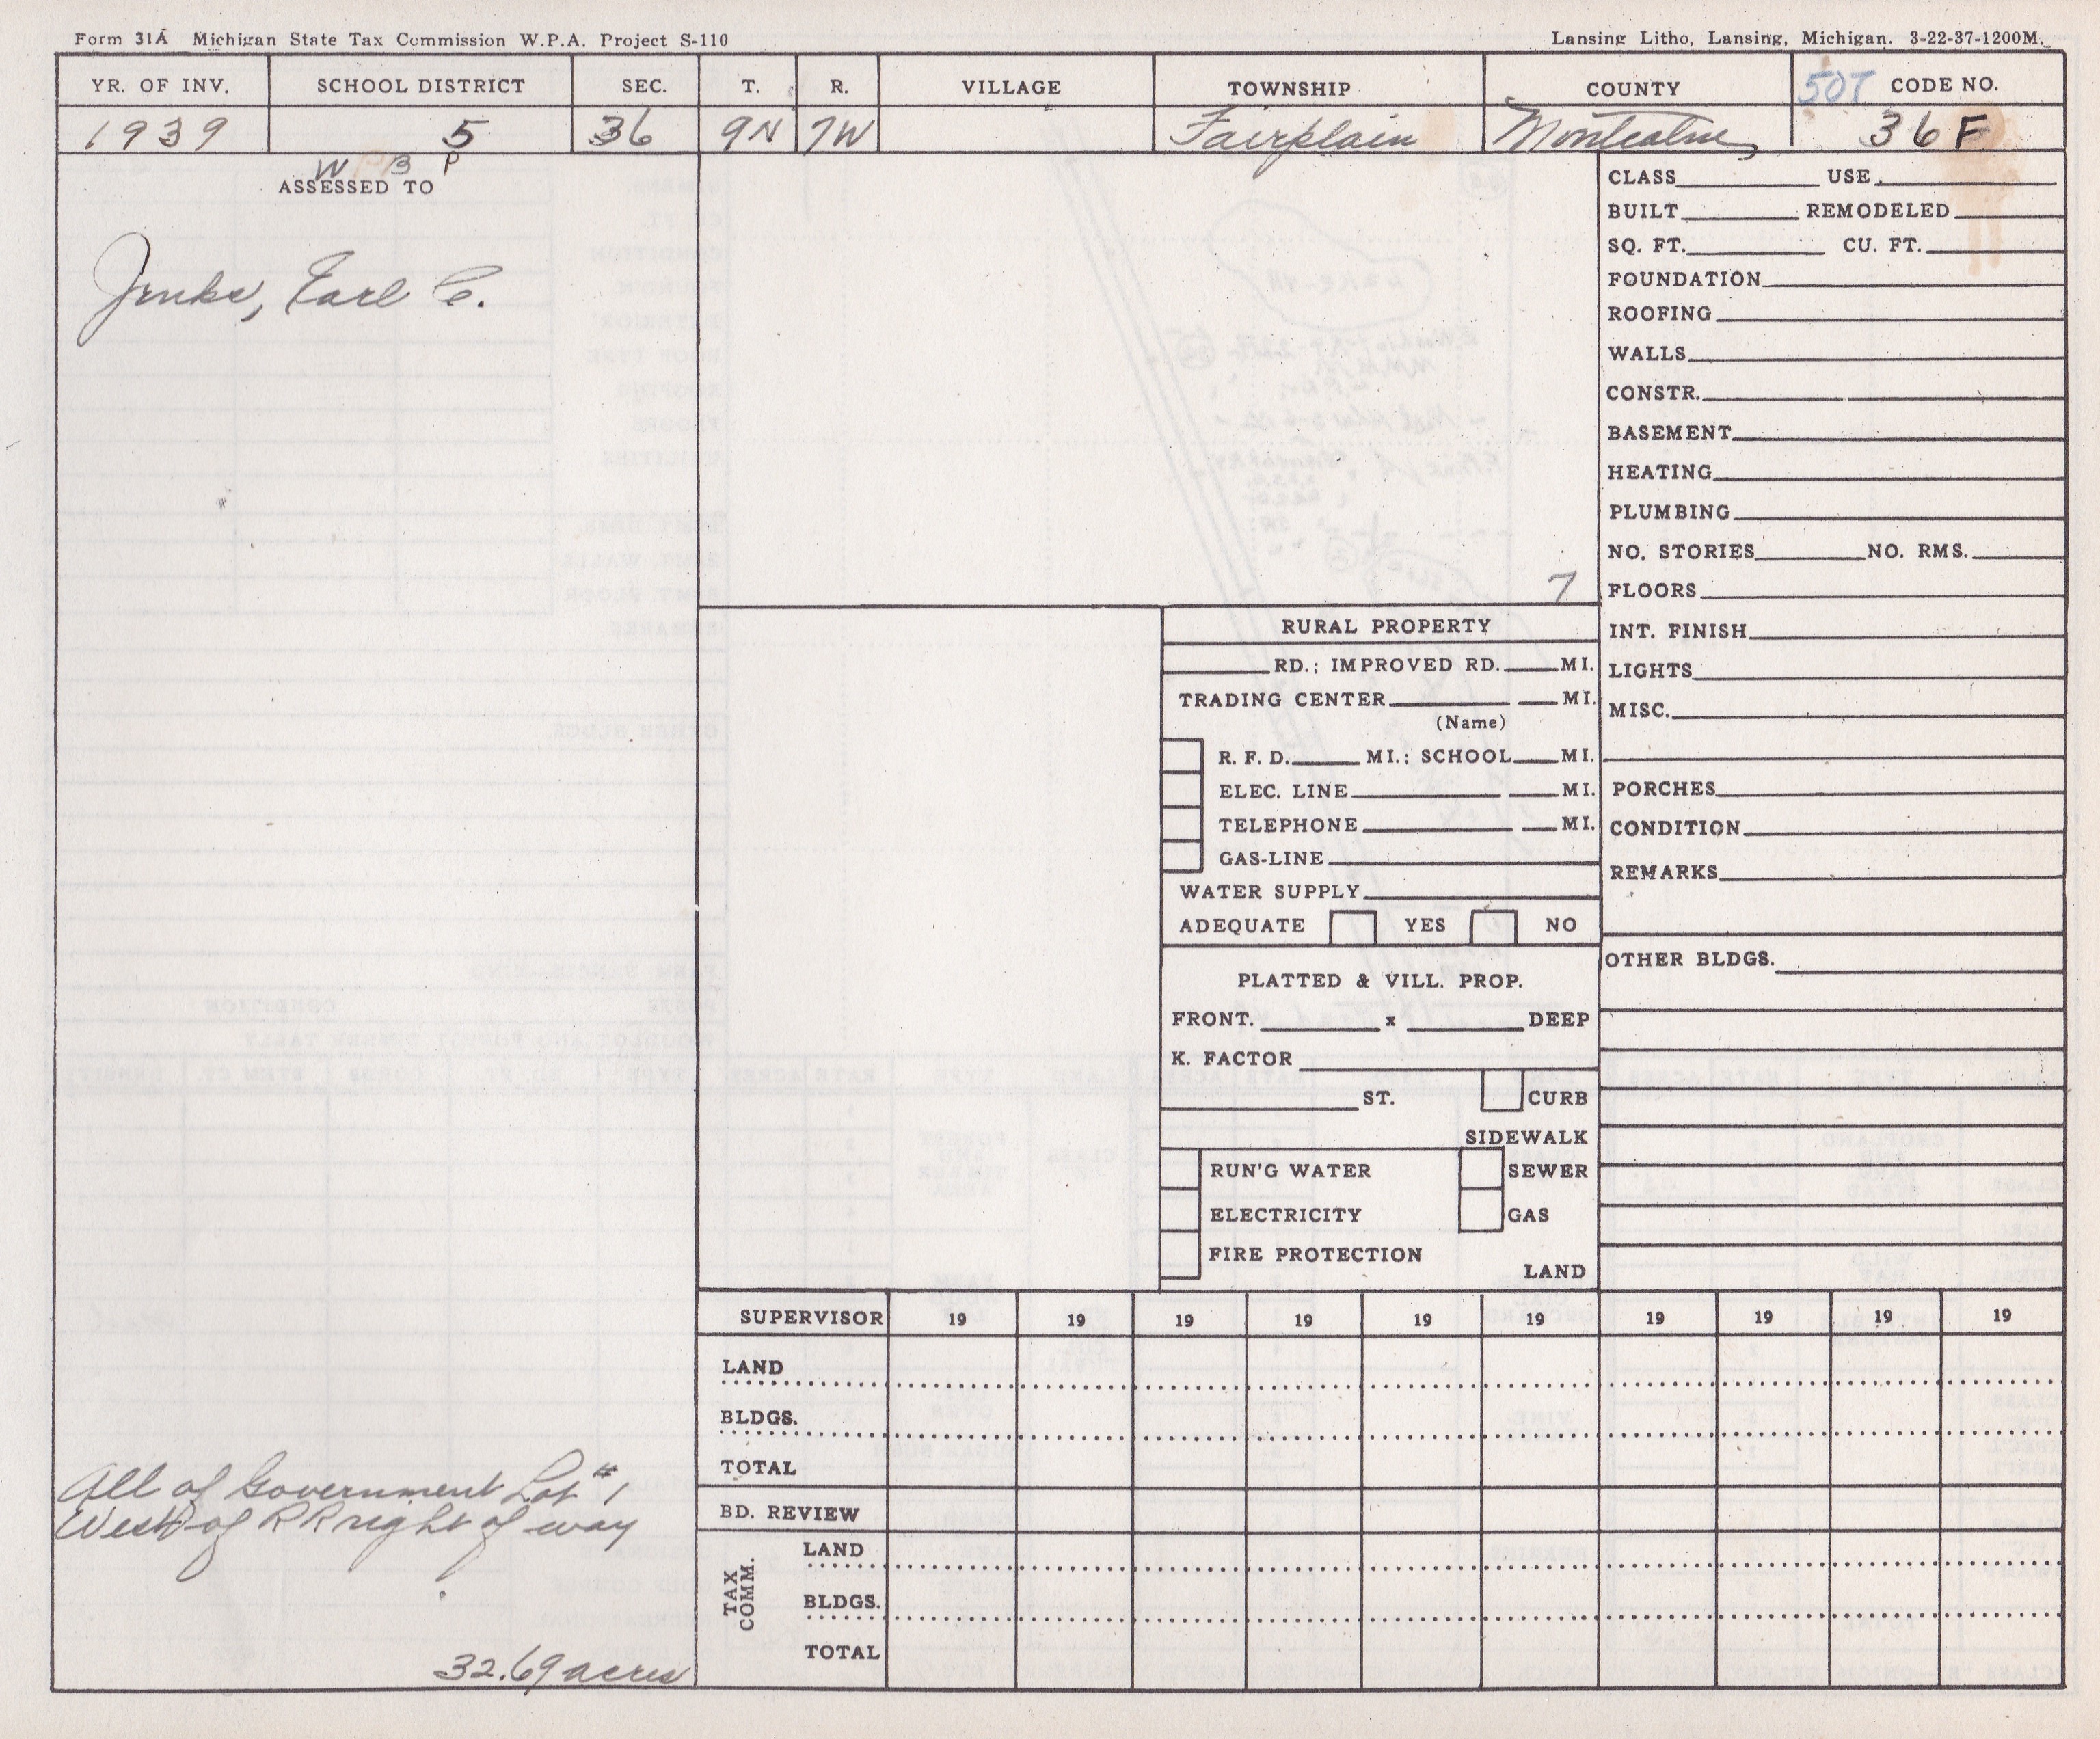 Form 31A Michigan State Tax Commission W.P.A. Project S-110
Lansing Litho, Lansing, Michigan. 3-22-37-1200M.
YR. OF INV. SCHOOL DISTRICT SEC. T. R. VILLAGE TOWNSHIP COUNTY 507 CODE NO.
1939 5 36 9N 7W Fairplain Montcalm 36F
W P B P
ASSESSED TO
Jenks, Earl C.
All of Government Lot #1
West of RR right of way
32.69 acres
7
RURAL PROPERTY
RD.; IMPROVED RD. MI.
TRADING CENTER MI.
(Name)
R. F. D. MI.; SCHOOL MI.
ELEC. LINE MI.
TELEPHONE MI.
GAS-LINE
WATER SUPPLY
ADEQUATE YES NO
PLATTED & VILL. PROP.
FRONT. x DEEP
K. FACTOR
ST. CURB
SIDEWALK
RUN'G WATER SEWER
ELECTRICITY GAS
FIRE PROTECTION
LAND
CLASS USE
BUILT REMODELED
SQ. FT. CU. FT.
FOUNDATION
ROOFING
WALLS
CONSTR.
BASEMENT
HEATING
PLUMBING
NO. STORIES NO. RMS.
FLOORS
INT. FINISH
LIGHTS
MISC.
PORCHES
CONDITION
REMARKS
OTHER BLDGS.
SUPERVISOR 19 19 19 19 19 19 19 19 19 19
LAND
BLDGS.
TOTAL
BD. REVIEW
TAX COMM.
LAND
BLDGS.
TOTAL